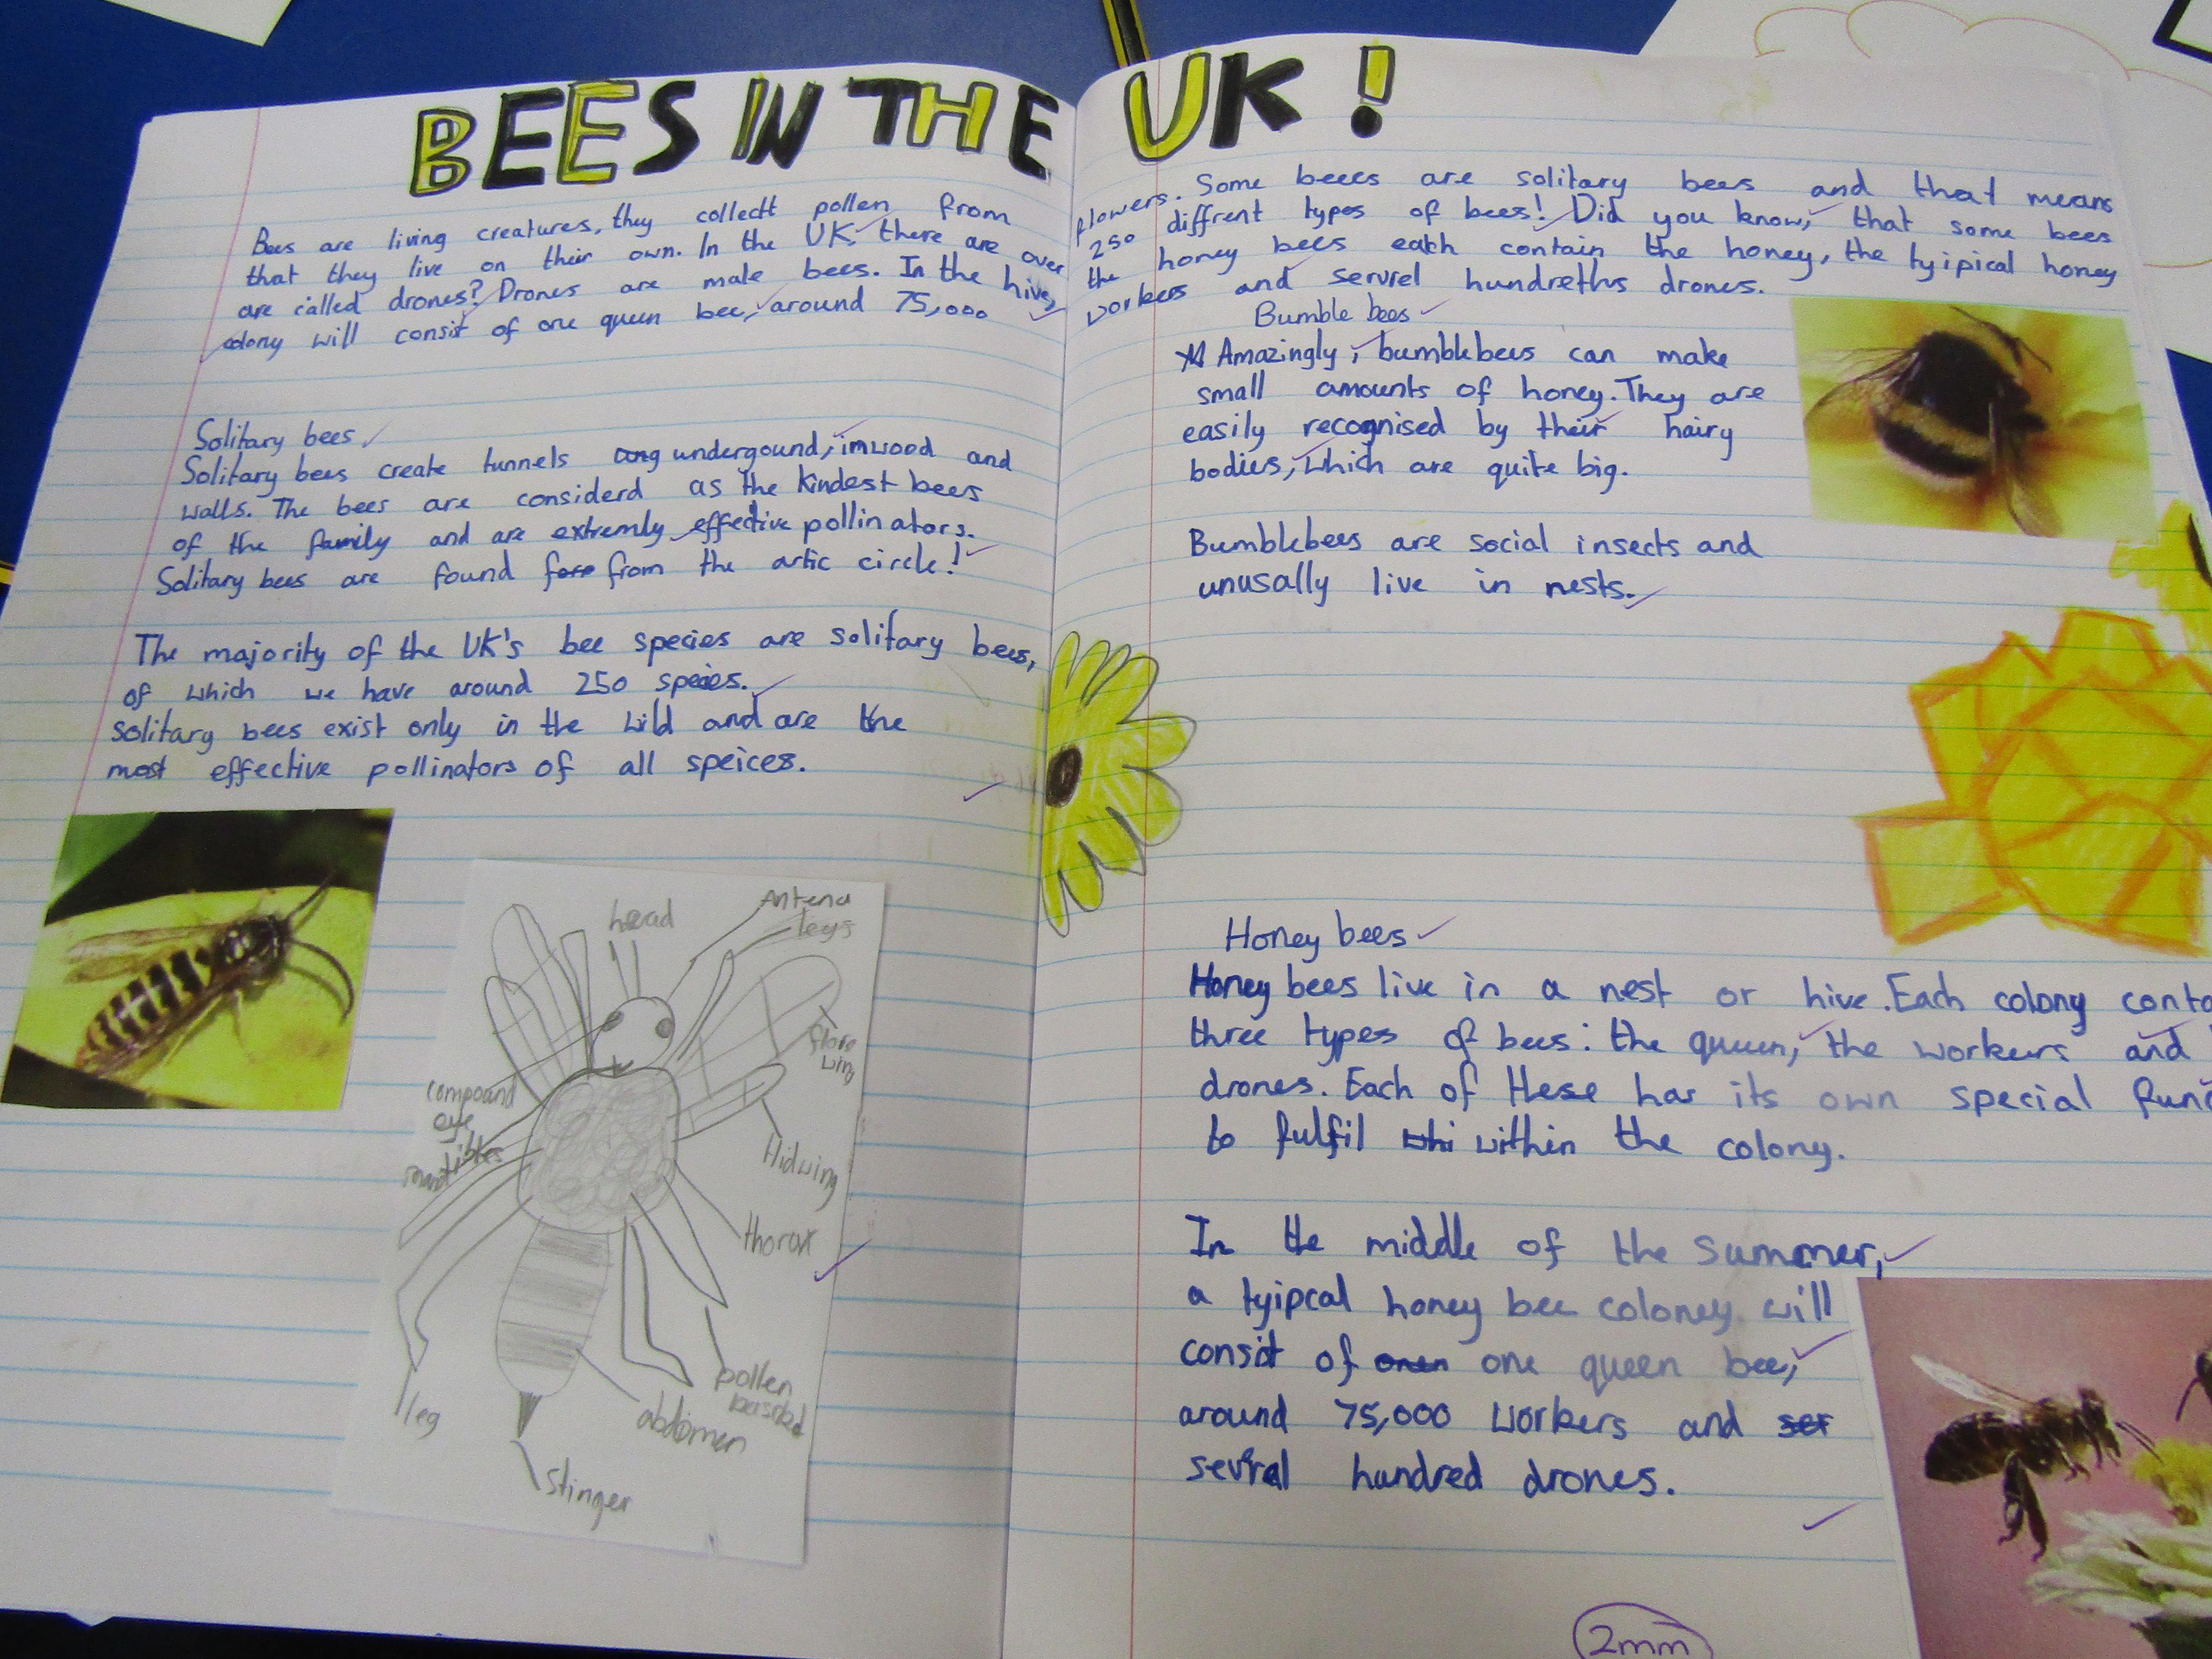 BEES IN THE UK!
Bees are living creatures, they collectt pollen from flowers. Some beees are solitary bees and that means
that they live on their own. In the UK there are over 250 diffrent types of bees! Did you know, that some bees
are called drones? Drones are male bees. In the hive, the honey bees each contain the honey, the tyipical honey
colony will consist of one queen bee, around 75,000 workers and servrel hundreths drones.
Solitary bees
Solitary bees create tunnels undergound, in wood and
walls. The bees are considerd as the kindest bees
of the family and are extremly effective pollinators.
Solitary bees are found from the artic circle!
The majority of the UK's bee species are solitary bees,
of which we have around 250 species.
solitary bees exist only in the wild and are the
most effective pollinators of all speices.
head
Antena
legs
compoand
eye
wing
Hidwing
thorax
pollen
abdomen
leg
stinger
Bumble bees
Amazingly, bumblebees can make
small amounts of honey. They are
easily recognised by their hairy
bodies, which are quite big.
Bumblebees are social insects and
unusally live in nests.
Honey bees
Honey bees live in a nest or hive. Each colony conta
three types of bees: the queen, the workers and
drones. Each of these has its own special func
to fulfil within the colony.
In the middle of the summer,
a tyipcal honey bee coloney will
consit of one queen bee,
around 75,000 workers and
sevral hundred drones.
2mm